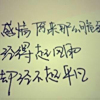 感情 原来那么可能
经得起风雨
却经不起平日